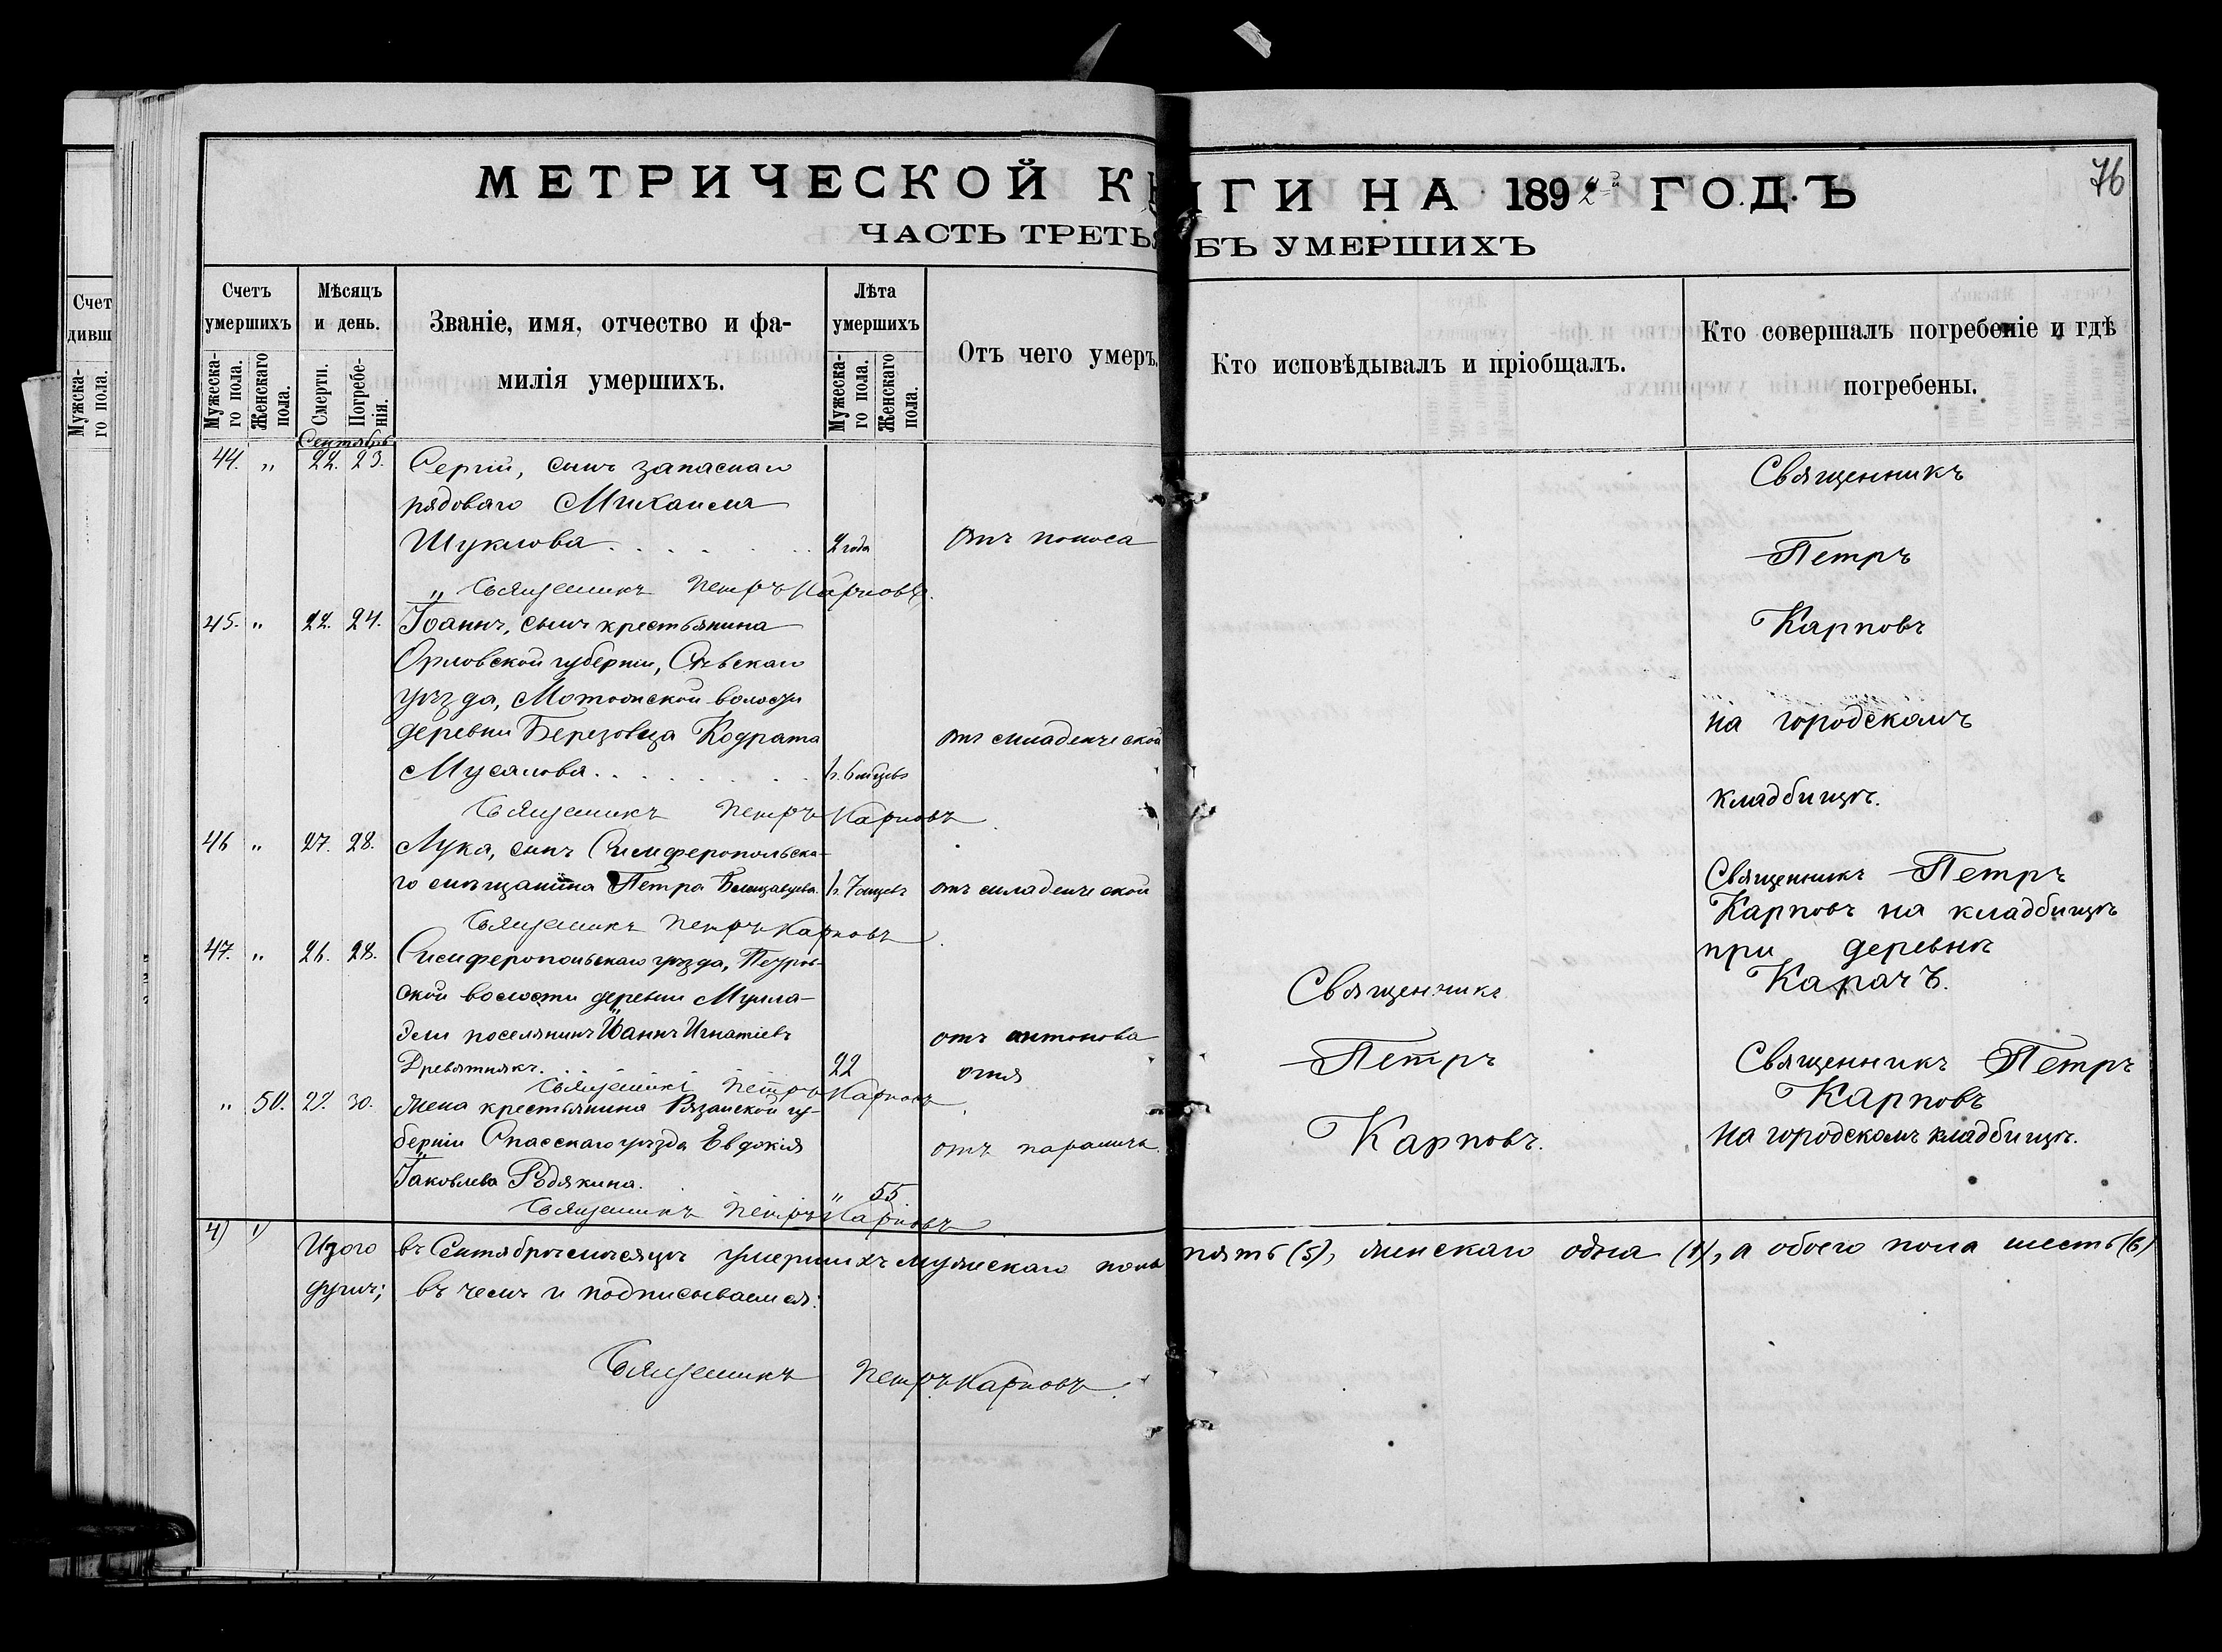 МЕТРИЧЕСКОЙ КНИГИ НА 1892й ГОДЪ
76
ЧАСТЬ ТРЕТЬЯ БЪ УМЕРШИХЪ
Счет
дивш
Мужска-
го пола.
Счетъ умершихъ
Мужеска-
го пола.
Женскаго
пола.
Мѣсяцъ и день.
Смерти.
Погребе-
нія.
Званіе, имя, отчество и фа-
милія умершихъ.
Лѣта умершихъ
Мужеска-
го пола.
Женскаго
пола.
Отъ чего умеръ.
Кто исповѣдывалъ и пріобщалъ.
Кто совершалъ погребеніе и гдѣ
погребены.
Сентябрь
44. " 22. 23. Сергій, сынъ запаснаго
рядоваго Михаила
Шуклова 2 года отъ поноса
Священникъ Петръ Карповъ.
45. " 22. 24. Іоаннъ, сынъ крестьянина
Орловской губерніи, Сѣвскаго
уѣзда, волости
деревни Березовца Кодрата
Мусялова 6 мѣцевъ отъ младенческой
Священникъ Петръ Карповъ
46 " 27. 28. Лука, сынъ Симферопольска-
го мѣщанина Петра 7 мцевъ отъ младенческой
Священникъ Петръ Карповъ
47. " 26. 28. Симферопольскаго уѣзда,
ской волости деревни
поселянинъ Іоаннъ Игнатіевъ отъ антонова
Древятнякъ. 22 огня
Священникъ Петръ Карповъ
" 50. 29. 30. Жена крестьянина Рязанской гу-
берніи Спасскаго уѣзда Евдокія отъ паралича
Іаковлева Родякина. " 55
Священникъ Петръ Карповъ
Священникъ
Петръ
Карповъ.
Священникъ
Петръ
Карповъ
на городскомъ
кладбищѣ.
Священникъ Петръ
Карповъ на кладбищѣ
при деревнѣ
Карачъ.
Священникъ Петръ
Карповъ
на городскомъ кладбищѣ.
4) 1) Итого въ Сентябрѣ мѣсяцѣ умершихъ мужескаго пола пять (5), женскаго одна (1), а обоего пола шесть (6)
душъ; въ чемъ и подписываемся:
Священникъ Петръ Карповъ.